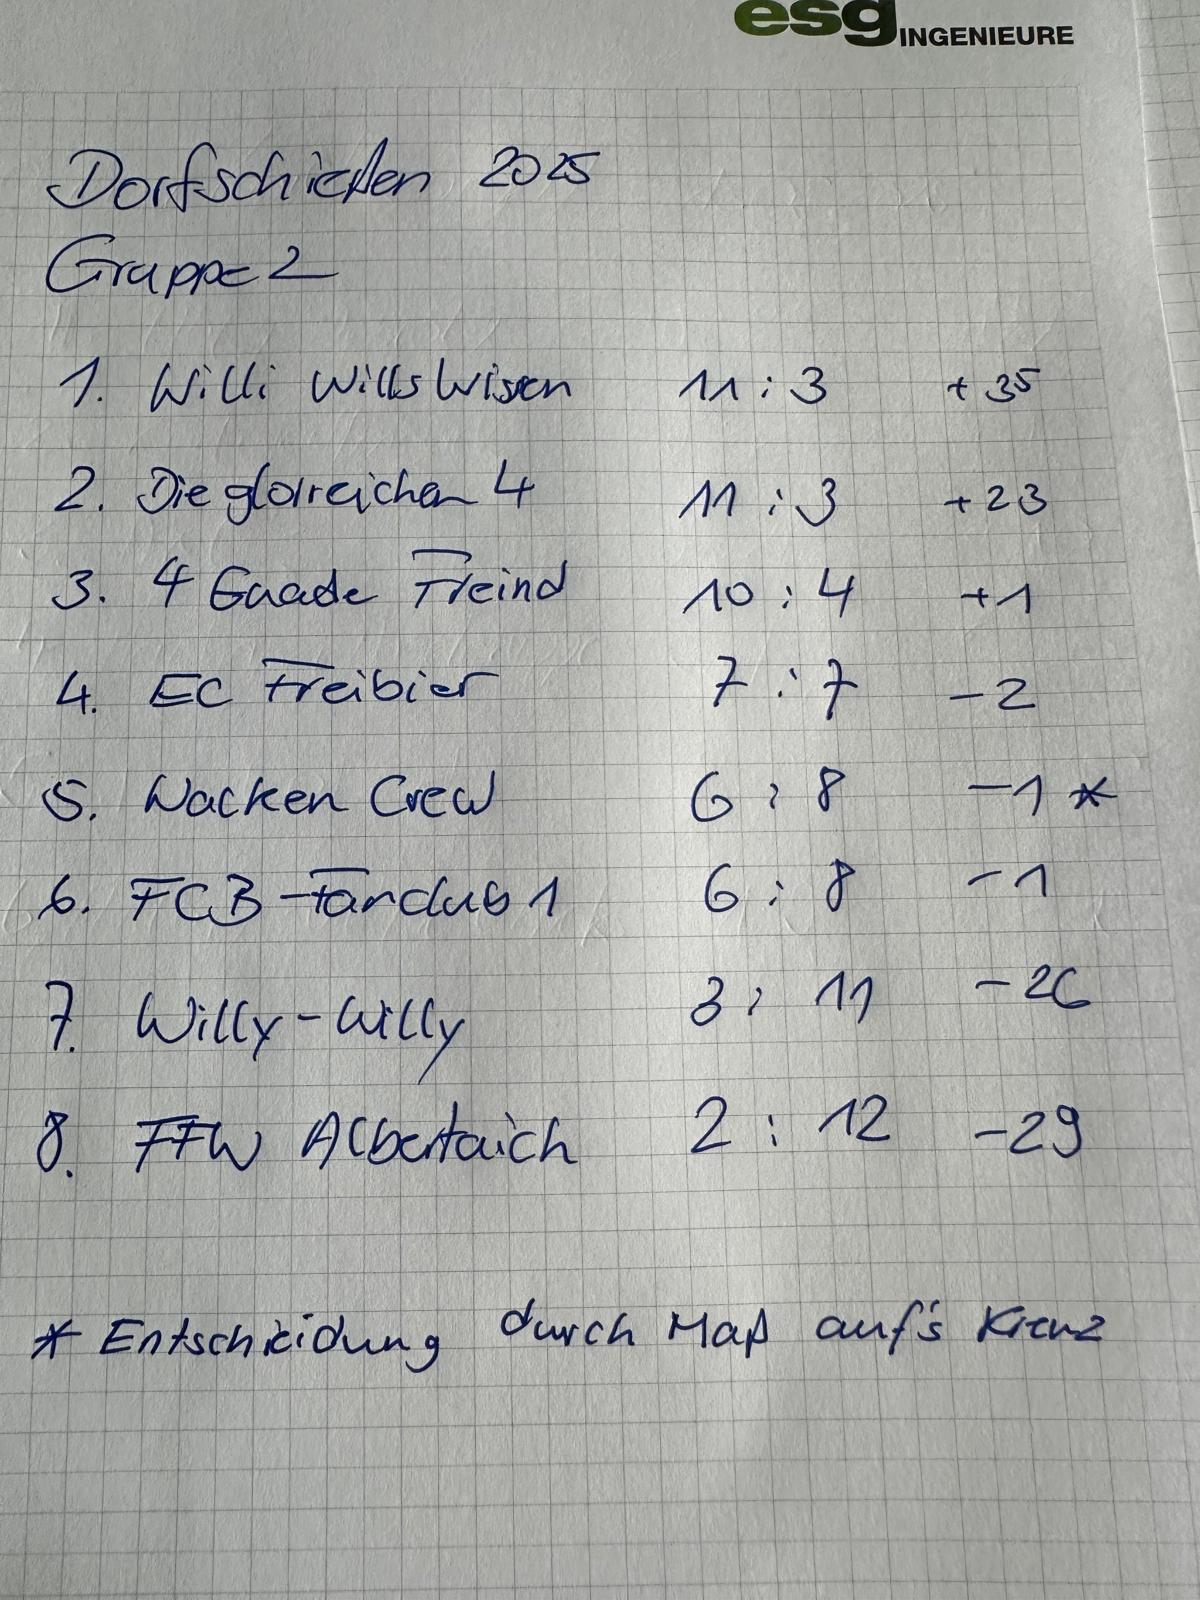 esg INGENIEURE
Dorfschießen 2025
Gruppe 2
1. Willi Wills Wissen 11 : 3 + 35
2. Die glorreichen 4 11 : 3 + 23
3. 4 Guade Freind 10 : 4 + 1
4. EC Freibier 7 : 7 - 2
5. Wacken Crew 6 : 8 - 1 *
6. FCB - Fanclub 1 6 : 8 - 1
7. Willy - Willy 3 : 11 - 26
8. FFW Albertaich 2 : 12 - 29
* Entscheidung durch Maß auf's Kreuz